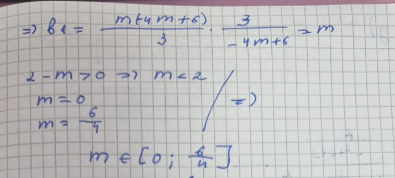 => b1 = m(-4m+6)/3 · 3/(-4m+6) = m
2-m>0 => m<2
m=0
m= 6/4 / =>
m ∈ [0; 6/4]